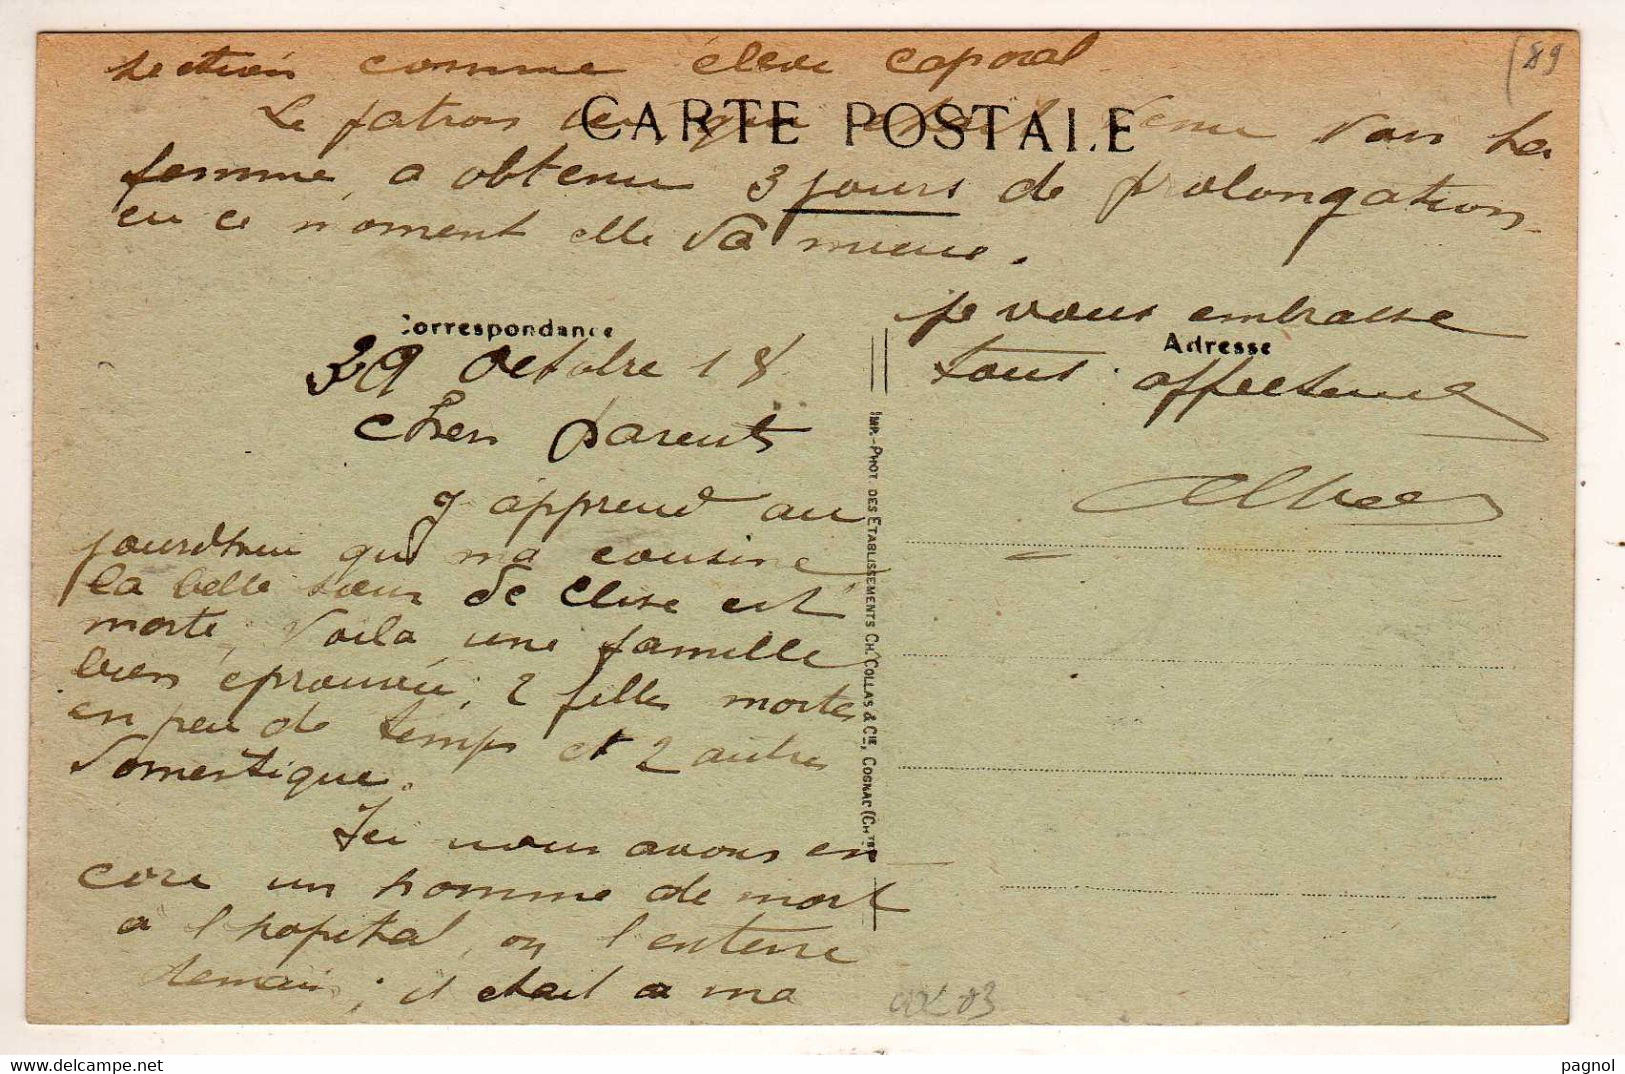 section comme élève caporal
(89
CARTE POSTALE
Le patron qui était venu voir sa
femme, a obtenu 3 jours de prolongation
en ce moment elle va mieux.
Correspondance
29 Octobre 18
Chers parents
J apprend au
jourdhui que ma cousine
la belle soeur de Elise est
morte, Voila une famille
bien éprouvée, 2 filles mortes
en peu de temps et 2 autres
domestique.
Ici nous avons en
core un homme de mort
a l hopital, on l enterre
demain ; il etait a ma
je vous embrasse
Adresse
tous affectueu
Albert
IMP.-PHOT. DES ETABLISSEMENTS CH. COLLAS & CIE, COGNAC (CHTE)
03
pagnol